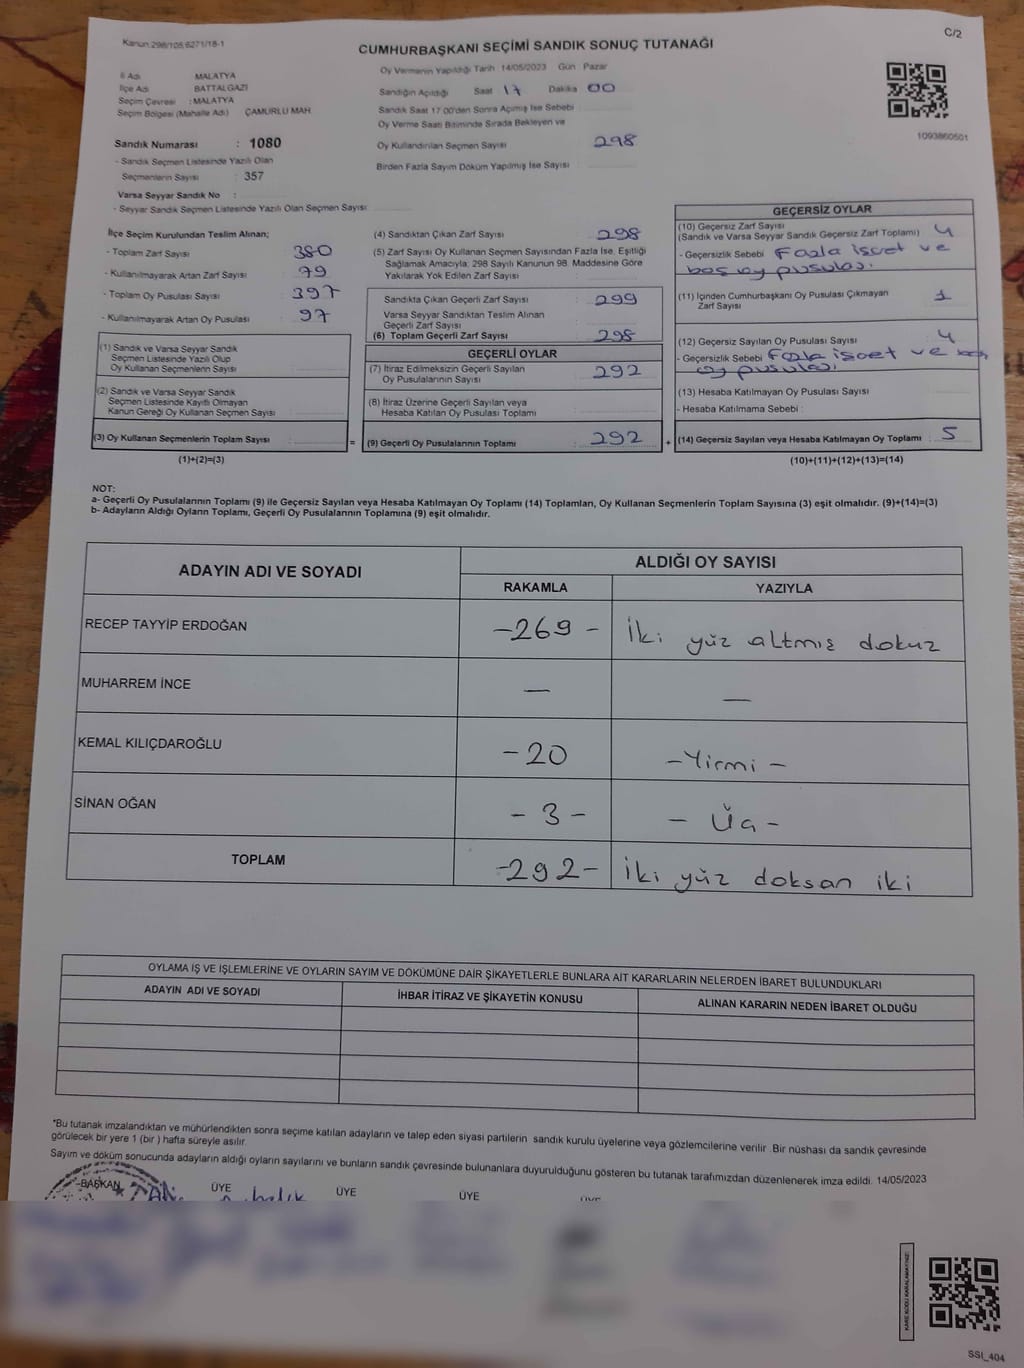 Kanun:298/105,6271/18-1
C/2
CUMHURBAŞKANI SEÇİMİ SANDIK SONUÇ TUTANAĞI
İl Adı MALATYA
İlçe Adı BATTALGAZİ
Seçim Çevresi : MALATYA
Seçim Bölgesi (Mahalle Adı) ÇAMURLU MAH.
Sandık Numarası : 1080
- Sandık Seçmen Listesinde Yazılı Olan
Seçmenlerin Sayısı : 357
Varsa Seyyar Sandık No :
- Seyyar Sandık Seçmen Listesinde Yazılı Olan Seçmen Sayısı
Oy Vermenin Yapıldığı Tarih 14/05/2023 Gün Pazar
Sandığın Açıldığı Saat 17 Dakika 00
Sandık Saat 17:00'den Sonra Açımış İse Sebebi
Oy Verme Saati Bitiminde Sırada Bekleyen ve
Oy Kullandırılan Seçmen Sayısı 298
Birden Fazla Sayım Döküm Yapılmış İse Sayısı
1093860501
İlçe Seçim Kurulundan Teslim Alınan;
- Toplam Zarf Sayısı 380
- Kullanılmayarak Artan Zarf Sayısı 79
- Toplam Oy Pusulası Sayısı 397
- Kullanılmayarak Artan Oy Pusulası 97
(1) Sandık ve Varsa Seyyar Sandık
Seçmen Listesinde Yazılı Olup
Oy Kullanan Seçmenlerin Sayısı
(2) Sandık ve Varsa Seyyar Sandık
Seçmen Listesinde Kayıtlı Olmayan
Kanun Gereği Oy Kullanan Seçmen Sayısı
(3) Oy Kullanan Seçmenlerin Toplam Sayısı :
(1)+(2)=(3)
=
(4) Sandıktan Çıkan Zarf Sayısı 298
(5) Zarf Sayısı Oy Kullanan Seçmen Sayısından Fazla İse, Eşitliği
Sağlamak Amacıyla; 298 Sayılı Kanunun 98. Maddesine Göre
Yakılarak Yok Edilen Zarf Sayısı
Sandıkta Çıkan Geçerli Zarf Sayısı : 299
Varsa Seyyar Sandıktan Teslim Alınan
Geçerli Zarf Sayısı
(6) Toplam Geçerli Zarf Sayısı : 298
GEÇERLİ OYLAR
(7) İtiraz Edilmeksizin Geçerli Sayılan
Oy Pusulalarının Sayısı : 292
(8) İtiraz Üzerine Geçerli Sayılan veya
Hesaba Katılan Oy Pusulası Toplamı
(9) Geçerli Oy Pusulalarının Toplamı : 292
+
GEÇERSİZ OYLAR
(10) Geçersiz Zarf Sayısı
(Sandık ve Varsa Seyyar Sandık Geçersiz Zarf Toplamı) 4
- Geçersizlik Sebebi Fazla işcet ve
boş oy pusulası.
(11) İçinden Cumhurbaşkanı Oy Pusulası Çıkmayan
Zarf Sayısı 1
(12) Geçersiz Sayılan Oy Pusulası Sayısı : 4
- Geçersizlik Sebebi Fazla işcet ve boş
oy pusulası
(13) Hesaba Katılmayan Oy Pusulası Sayısı
- Hesaba Katılmama Sebebi :
(14) Geçersiz Sayılan veya Hesaba Katılmayan Oy Toplamı : 5
(10)+(11)+(12)+(13)=(14)
NOT:
a- Geçerli Oy Pusulalarının Toplamı (9) ile Geçersiz Sayılan veya Hesaba Katılmayan Oy Toplamı (14) Toplamları, Oy Kullanan Seçmenlerin Toplam Sayısına (3) eşit olmalıdır. (9)+(14)=(3)
b- Adayların Aldığı Oyların Toplamı, Geçerli Oy Pusulalarının Toplamına (9) eşit olmalıdır.
ADAYIN ADI VE SOYADI
ALDIĞI OY SAYISI
RAKAMLA YAZIYLA
RECEP TAYYİP ERDOĞAN -269- İki yüz altmış dokuz
MUHARREM İNCE — —
KEMAL KILIÇDAROĞLU -20 -Yirmi-
SİNAN OĞAN -3- - Üç -
TOPLAM -292- İki yüz doksan iki
OYLAMA İŞ VE İŞLEMLERİNE VE OYLARIN SAYIM VE DÖKÜMÜNE DAİR ŞİKAYETLERLE BUNLARA AİT KARARLARIN NELERDEN İBARET BULUNDUKLARI
ADAYIN ADI VE SOYADI İHBAR İTİRAZ VE ŞİKAYETİN KONUSU ALINAN KARARIN NEDEN İBARET OLDUĞU
*Bu tutanak imzalandıktan ve mühürlendikten sonra seçime katılan adayların ve talep eden siyasi partilerin sandık kurulu üyelerine veya gözlemcilerine verilir. Bir nüshası da sandık çevresinde
görülecek bir yere 1 (bir) hafta süreyle asılır.
Sayım ve döküm sonucunda adayların aldığı oyların sayılarını ve bunların sandık çevresinde bulunanlara duyurulduğunu gösteren bu tutanak tarafımızdan düzenlenerek imza edildi. 14/05/2023
BAŞKAN ÜYE ÜYE ÜYE ÜYE
KARE KODU KARALAMAYINIZ!
SSI_404